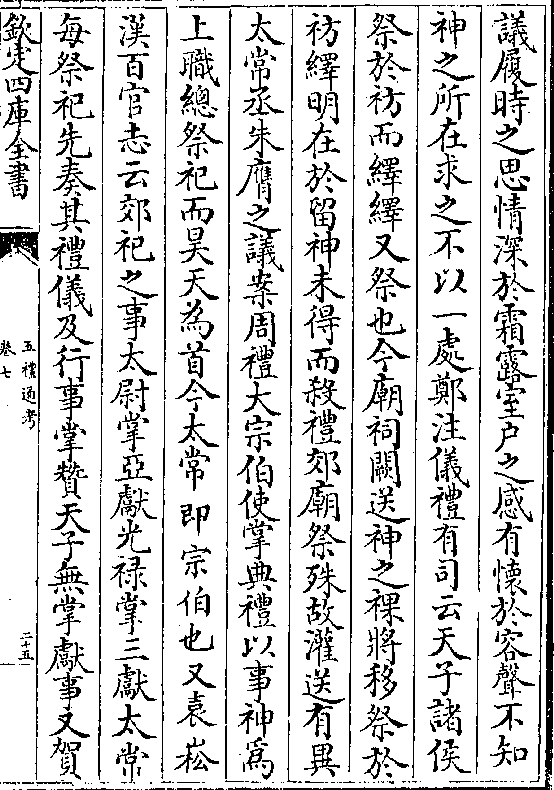 議履時之思情深於霜露室户之感有懷於容聲不知
神之所在求之不以一處鄭注儀禮有司云天子諸侯
祭於祊而繹繹又祭也今廟祠闕送神之祼將移祭於
祊繹明在於留神未得而殺禮郊廟祭殊故灌送有異
太常丞朱膺之議案周禮大宗伯使掌典禮以事神為
上職總祭祀而昊天為首今太常即宗伯也又袁崧
漢百官志云郊祀之事太尉掌亞獻光禄掌三獻太常
每祭祀先奏其禮儀及行事掌贊天子無掌獻事又賀
欽定四庫全書
五禮通考
卷七
二十五